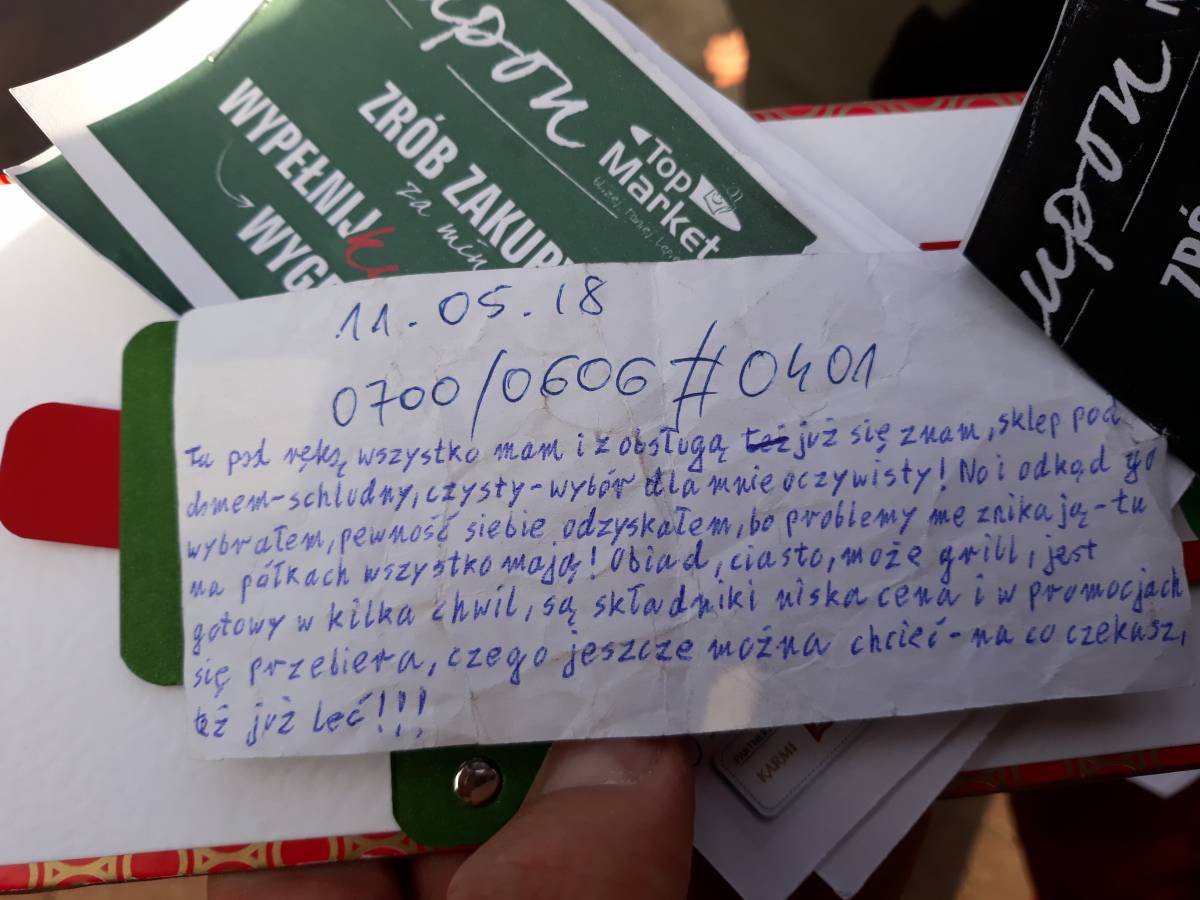 upon
Top
Market
ZRÓB ZAKUP
za min
WYPEŁNIJ
ku
WYGR
upon
11.05.18
0700/0606#0401
Tu pod ręką wszystko mam i z obsługą też już się znam, sklep pod
domem-schludny, czysty-wybór dla mnie oczywisty! No i odkąd go
wybrałem, pewność siebie odzyskałem, bo problemy me znikają-tu
na półkach wszystko mają! Obiad, ciasto, może grill, jest
gotowy w kilka chwil, są składniki niska cena i w promocjach
się przebiera, czego jeszcze można chcieć-na co czekasz,
też już leć!!!
KARMI